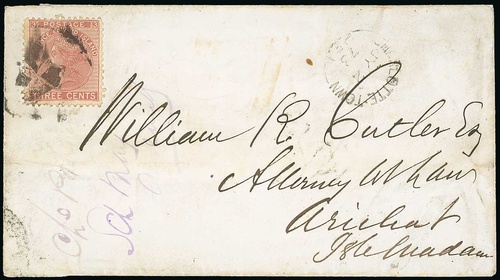 3 POSTAGE 3
THREE CENTS
CHARLOTTE-TOWN
William R Cutler Esq
Attorney At Law
Arichat
Isle Madam